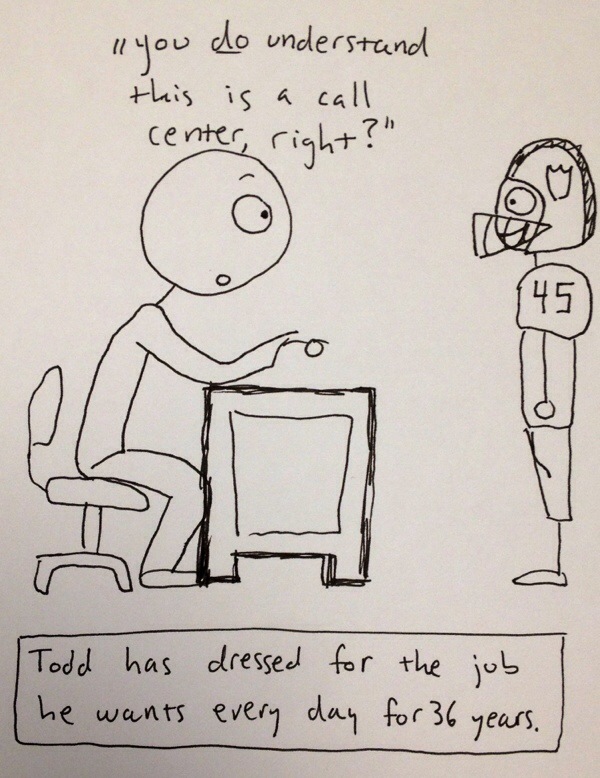 "you do understand
this is a call
center, right?"
45
Todd has dressed for the job
he wants every day for 36 years.